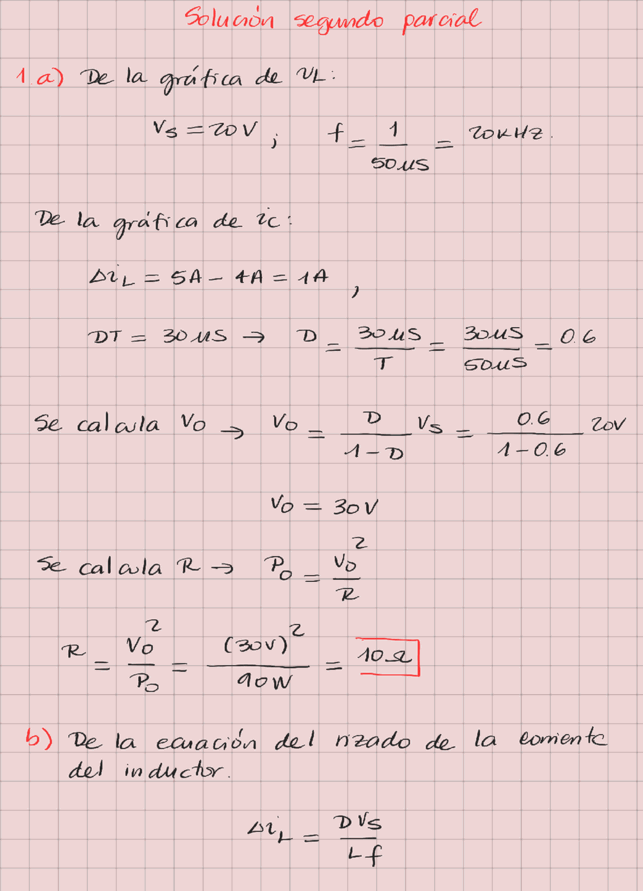 Solución segundo parcial
1 a) De la gráfica de VL:
Vs = 20V ; f = 1/50μs = 20kHz.
De la gráfica de ic:
ΔiL = 5A - 4A = 1A ,
DT = 30μs → D = 30μs/T = 30μs/50μs = 0.6
Se calcula Vo → Vo = D/1-D Vs = 0.6/1-0.6 20V
Vo = 30V
Se calcula R → Po = Vo²/R
R = Vo²/Po = (30V)²/90W = 10Ω
b) De la ecuación del rizado de la corriente
del inductor.
ΔiL = DVs/Lf